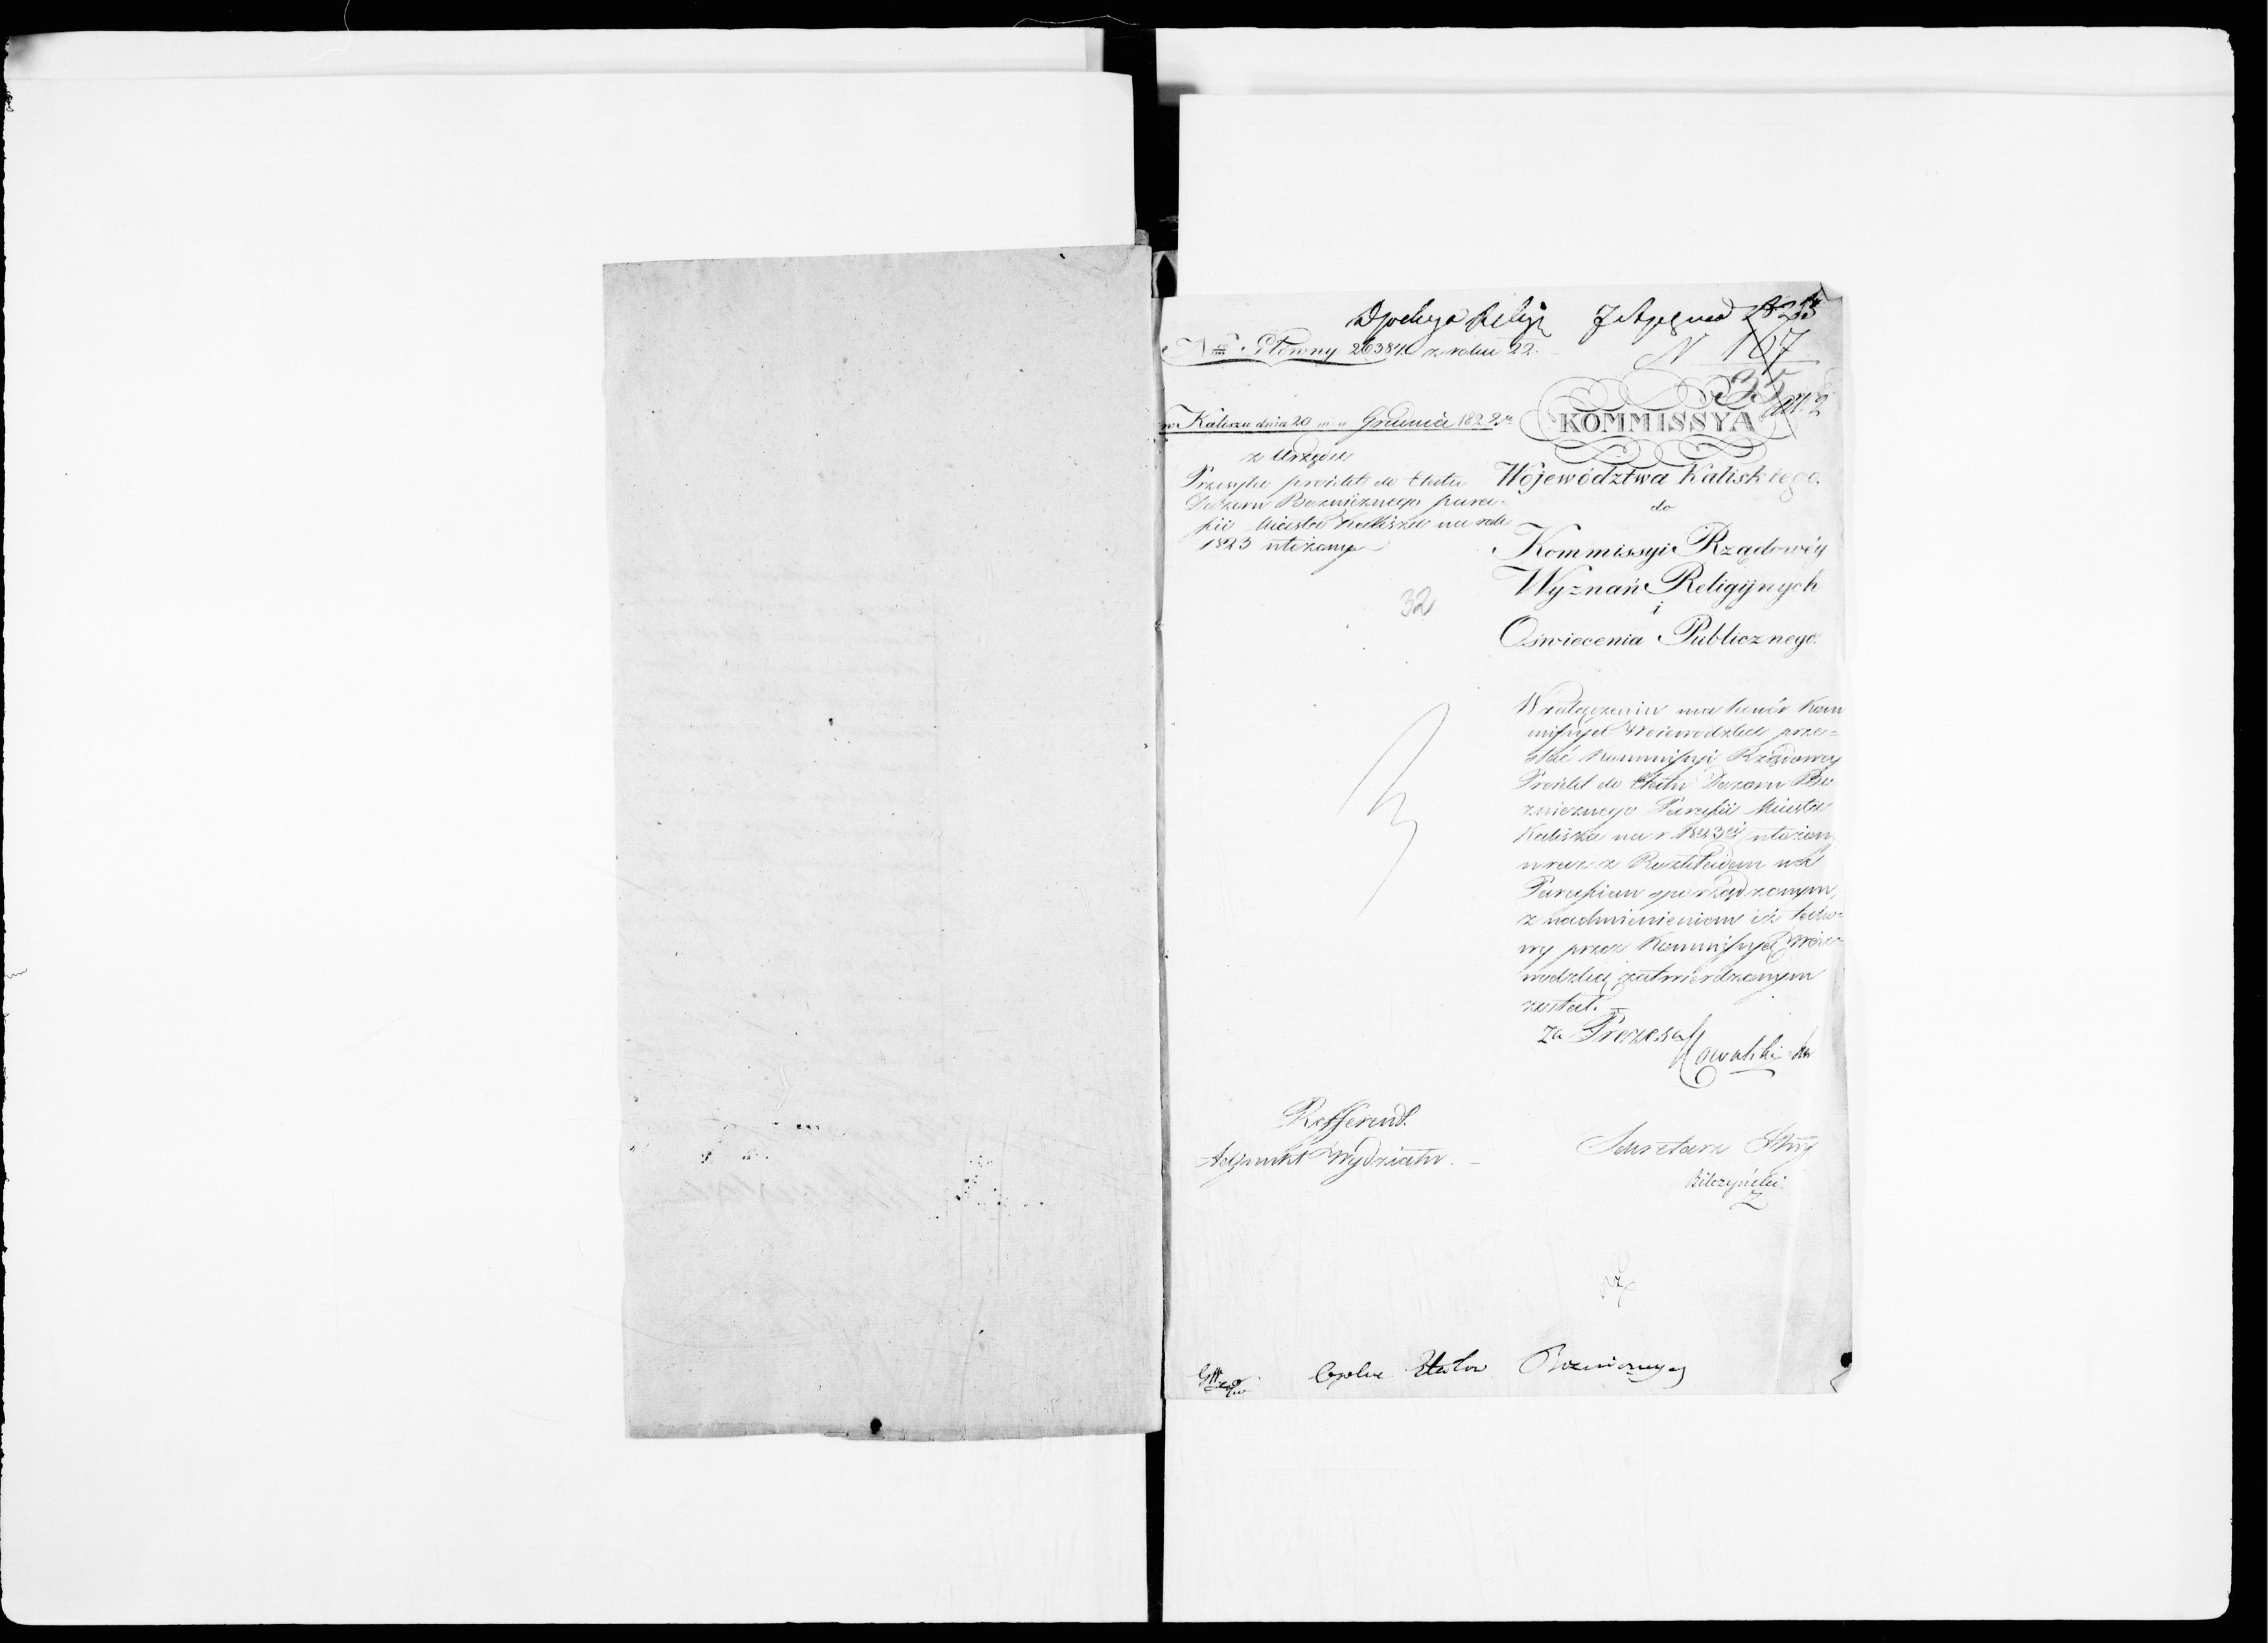 N 167
35
Nro Główny 26384. z roku 22.
w Kaliszu dnia 20 m-ca Grudnia 1822 r.
z Urzędu
Przesyła projekt do Etatu
Dozoru Bożnicznego para-
fii Miasta Kalisza na rok
1823 ułożony
32
KOMMISSYA
Województwa Kaliskiego.
do
Kommissyi Rządowéy
Wyznań Religijnych
i
Oświecenia Publicznego.
W załączeniu ma honór Kom
missya Woiewodzka prze-
słać Kommissyi Rządowey
Projekt do Etatu Dozoru Bo
żnicznego Parafii Miasta
Kalisza na r. 1823 ułożony
wraz z Rozkładem na
Parafian sporządzonym,
z nadmienieniem iż tako-
wy przez Kommissyą Woie-
wodzką zatwierdzonym
został.
Za Prezesa Kowalski
Refferent.
Adjunkt Wydziału.
Sekretarz Jlny
Bilczyński.
Etatów Bożnicznych